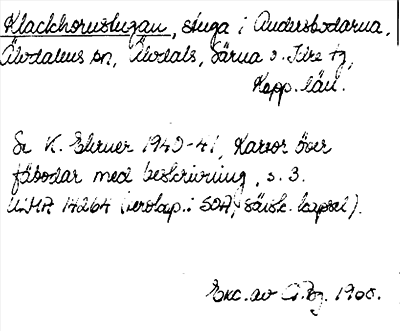 Klackhornstugan, stuga i Andersbodarna,
Älvdalens sn, Älvdals, Särna o. Idre tg,
Kopp. län.
Se K. Ehrner 1940-41, Kartor över
fäbodar med beskrivning, s. 3.
ULMA 14264 (i SOA, särsk. kapsel).
Exc. av